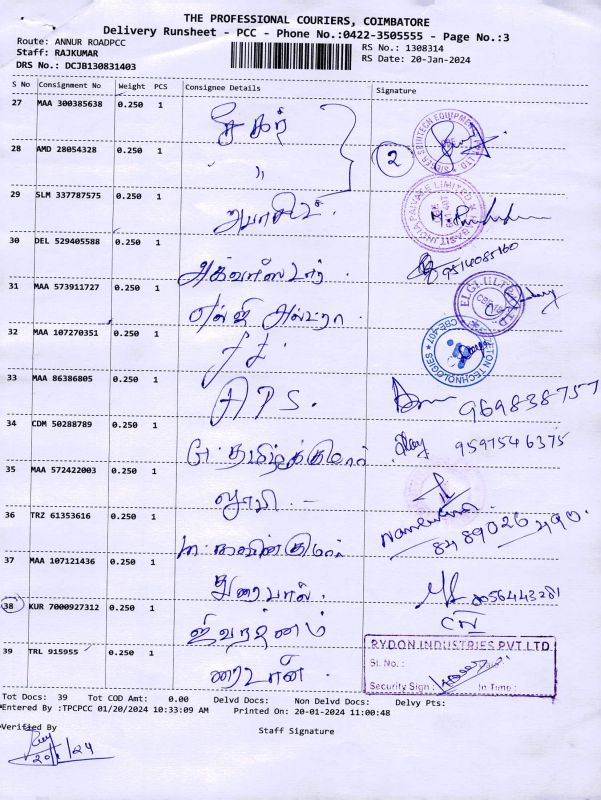 THE PROFESSIONAL COURIERS, COIMBATORE
Delivery Runsheet - PCC - Phone No.:0422-3505555 - Page No.:3
Route: ANNUR ROADPCC
Staff: RAJKUMAR
DRS No.: DCJB130831403
RS No.: 1308314
RS Date: 20-Jan-2024
S No Consignment No Weight PCS Consignee Details Signature
27 MAA 300385638 0.250 1 சேகர்
28 AMD 28054328 0.250 1 " 2
29 SLM 337787575 0.250 1
30 DEL 529405588 0.250 1 அக்வாஸ்டார். 9514085160
31 MAA 573911727 0.250 1 எல்ஜி அல்ட்ரா
32 MAA 107270351 0.250 1
33 MAA 86386805 0.250 1 APS. 969838757
34 CDM 50288789 0.250 1 G. தமிழ்க்குமார் 9597546375
35 MAA 572422003 0.250 1
36 TRZ 61353616 0.250 1 8489026490.
37 MAA 107121436 0.250 1 துரைபால். 8056443281
38 KUR 7000927312 0.250 1 ஜிவரத்னம்
39 TRL 915955 0.250 1 ரைடான்.
RYDON INDUSTRIES PVT.LTD.
Sl. No. :
Security Sign : In Time :
Tot Docs: 39 Tot COD Amt: 0.00 Delvd Docs: Non Delvd Docs: Delvy Pts:
Entered By :TPCPCC 01/20/2024 10:33:09 AM Printed On: 20-01-2024 11:00:48
Verified By Staff Signature
20/1/24